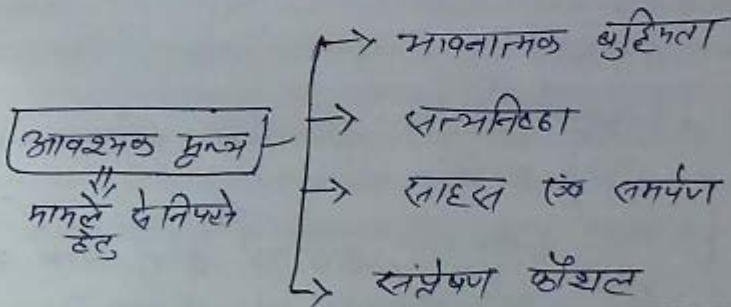 आवश्यक मूल्य
मामले से निपटने
हेतु
→ भावनात्मक बुद्धिमता
→ सत्यनिष्ठा
→ साहस एवं समर्पण
→ संप्रेषण कौशल